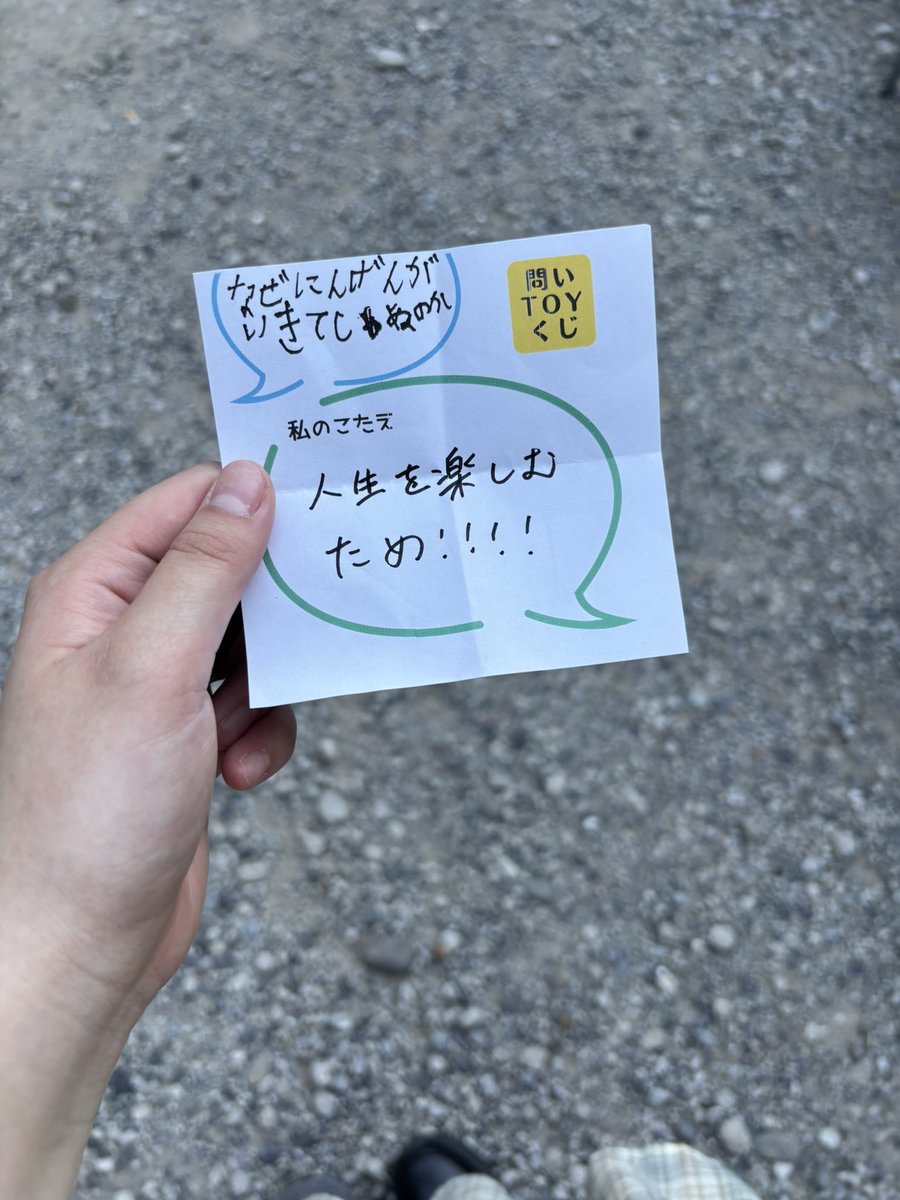 なぜにんげんが
いきてしぬのか
問い
TOY
くじ
私のこたえ
人生を楽しむ
ため!!!!